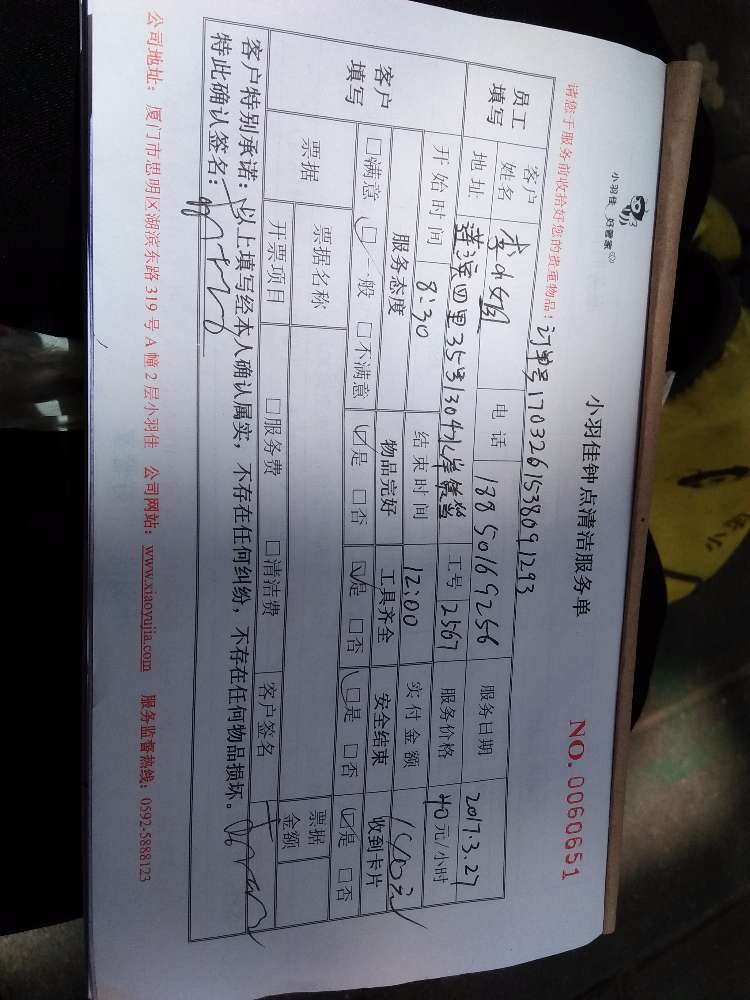 小羽佳 好管家
小羽佳钟点清洁服务单
NO.0060651
请您于服务前收拾好您的贵重物品!
订单号170326153809 1293
员工填写
客户姓名 李小姐 电话 18850169256 服务日期 2017.3.27
地址 莲滨四里35号1304 工号 2567 服务价格 40元/小时
开始时间 8:30 结束时间 12:00 实付金额 140元
客户填写
服务态度 物品完好 工具齐全 安全结束 收到卡片
□满意 □一般 □不满意 ☑是 □否 ☑是 □否 ☑是 □否 ☑是 □否
票据 票据名称 票据金额
开票项目 □服务费 □清洁费 客户签名
客户特别承诺:以上填写经本人确认属实,不存在任何纠纷,不存在任何物品损坏。
特此确认签名:
公司地址:厦门市思明区湖滨东路319号A幢2层小羽佳 公司网站:www.xiaoyujia.com 服务监督热线:0592-5888123